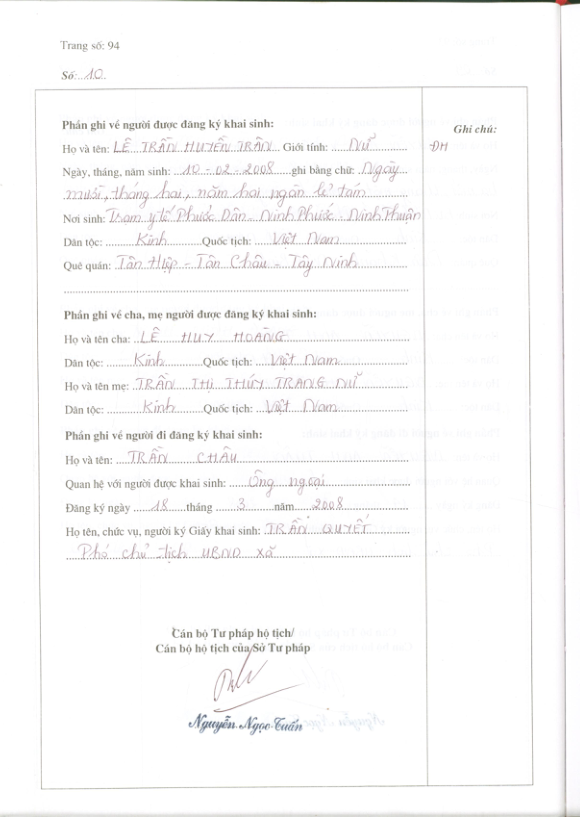 Trang số: 94
Số: 10
Phần ghi về người được đăng ký khai sinh:
Ghi chú:
Họ và tên: LÊ TRẦN HUYỀN TRÂN Giới tính: NỮ
ĐH
Ngày, tháng, năm sinh: 10-02-2008 ghi bằng chữ: Ngày
mười, tháng hai, năm hai ngàn lẻ tám
Nơi sinh: Trạm y tế Phước Dân - Ninh Phước - Ninh Thuận
Dân tộc: Kinh Quốc tịch: Việt Nam
Quê quán: Tân Hiệp - Tân Châu - Tây Ninh
Phần ghi về cha, mẹ người được đăng ký khai sinh:
Họ và tên cha: LÊ HUY HOÀNG
Dân tộc: Kinh Quốc tịch: Việt Nam
Họ và tên mẹ: TRẦN THỊ THÚY TRANG NỮ
Dân tộc: Kinh Quốc tịch: Việt Nam
Phần ghi về người đi đăng ký khai sinh:
Họ và tên: TRẦN CHÂU
Quan hệ với người được khai sinh: Ông ngoại
Đăng ký ngày 18 tháng 3 năm 2008
Họ tên, chức vụ, người ký Giấy khai sinh: TRẦN QUYẾT
Phó chủ tịch UBND xã
Cán bộ Tư pháp hộ tịch/
Cán bộ hộ tịch của Sở Tư pháp
Nguyễn Ngọc Tuấn